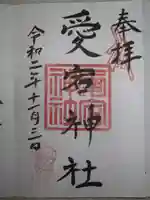 奉拝
愛宕神社
令和二年十一月三日